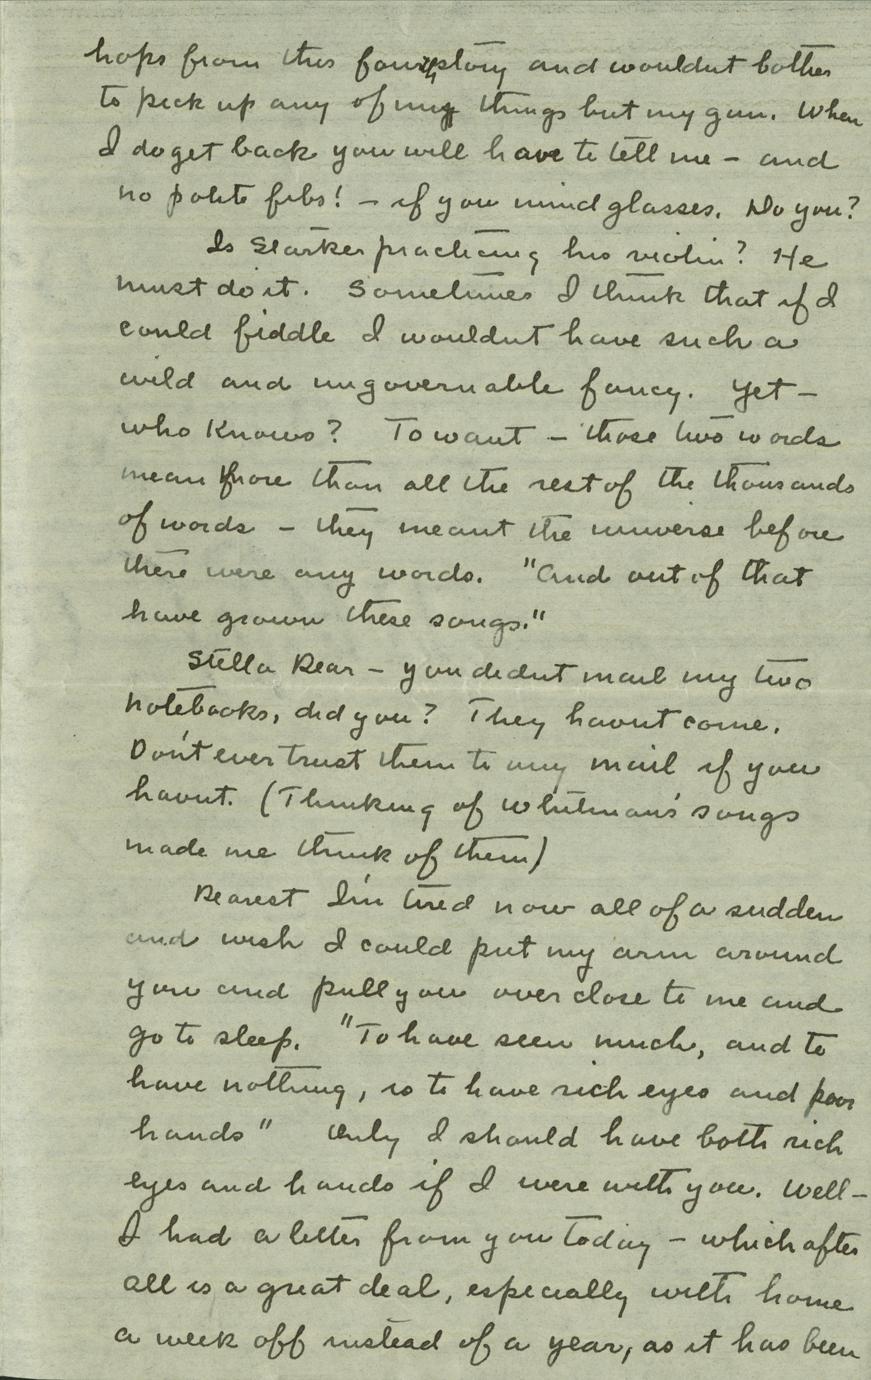 hops from this four story and wouldnt bother
to pick up any of my things but my gun. When
I do get back you will have to tell me – and
no polite fibs! – if you mind glasses. Do you?
Is Starker practicing his violin? He
must do it. Sometimes I think that if I
could fiddle I wouldnt have such a
wild and ungovernable fancy. Yet –
who knows? To want – those two words
mean more than all the rest of the thousands
of words – they meant the universe before
there were any words. "And out of that
have grown these songs."
Stella Dear – you didnt mail my two
notebooks, did you? They havnt come.
Don't ever trust them to any mail if you
havnt. (Thinking of Whitman's songs
made me think of them)
Dearest I'm tired now all of a sudden
and wish I could put my arm around
you and pull you over close to me and
go to sleep. "To have seen much, and to
have nothing, is to have rich eyes and poor
hands" Only I should have both rich
eyes and hands if I were with you. Well –
I had a letter from you today – which after
all is a great deal, especially with home
a week off instead of a year, as it has been